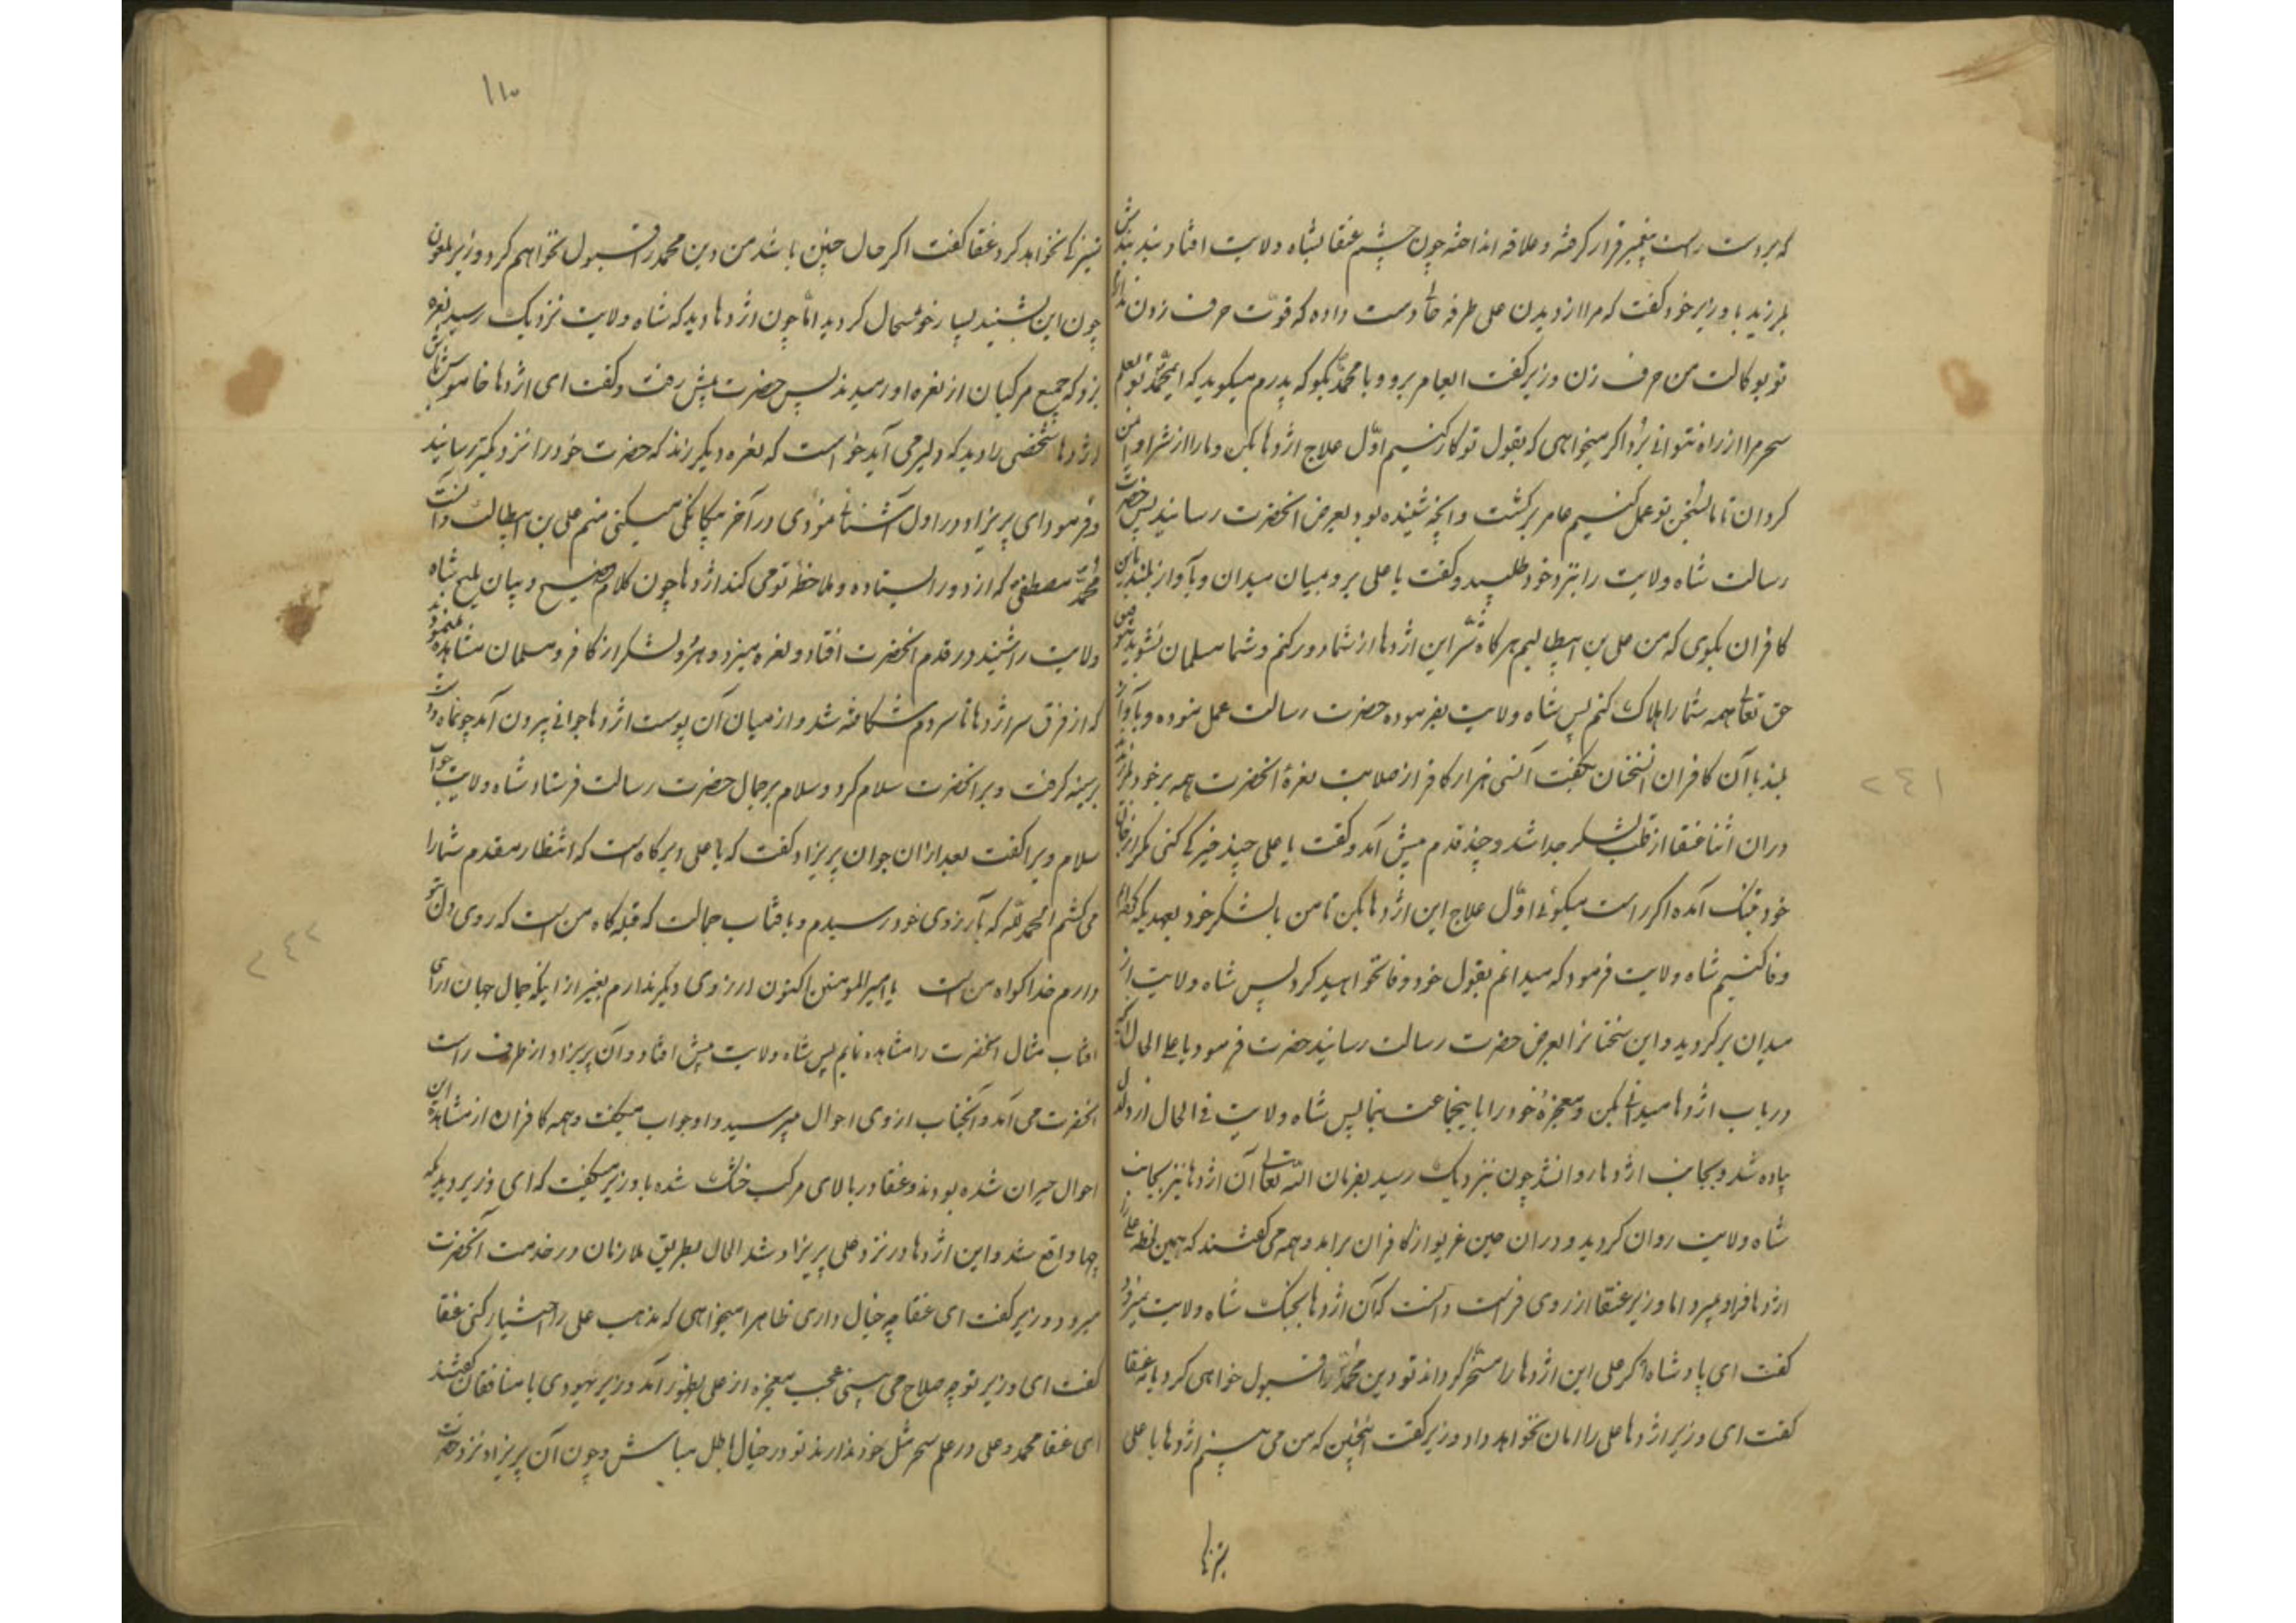 که بر دست راست پیغمبر قرار کرفته و علاقه انداخته چون چشم عنقا بشاه ولایت افتاد بند بندش
بلرزید با وزیر خود کفت که مرا از دیدن علی طرفه حالی دست داده که قوت حرف زدن ندارم
تو بوکالت من حرف زن وزیر کفت ایعامر برو و با محمد بکو که پدرم میکوید که ایمحمد تو بعلم
سحر مرا از راه نتوانی برد اکر میخواهی که بقول تو کار کنیم اول علاج اژدها بکن و ما را از شر او ایمن
کردان تا ما بسخن تو عمل کنیم عامر برکشت و آنچه شنیده بود بعرض آنحضرت رسانید پس حضرت
رسالت شاه ولایت را بنزد خود طلبید و کفت یا علی برو بمیان میدان و بآواز بلند باین
کافران بکوی که من علی بن ابیطالبم هرکاه شر این اژدها از شما دور کنم و شما مسلمان نشوید
حق تعالی همه شما را هلاک کنم پس شاه ولایت بفرموده حضرت رسالت عمل نموده و بآواز
بلند با آن کافران آنسخنان بکفت آنسی هزار کافر از صلابت نعرهٔ آنحضرت همه بر خود بلرزیدند
دران اثنا عنقا از قلب لشکر جدا شد و چند قدم پیش آمد و کفت یا علی چند خیرکی کنی مکر از جان
خود بتنک آمده اکر راست میکوئی اول علاج این اژدها بکن تا من با لشکر خود بعهدیکه کرده‌ام
وفا کنیم شاه ولایت فرمود که میدانم بقول خود وفا نخواهید کرد پس شاه ولایت از
میدان برکردید و این سخنانرا بعرض حضرت رسالت رسانید حضرت فرمود یا علی الحال آنچه
در باب اژدها میدانی بکن و معجزهٔ خود را باینجماعت بنما پس شاه ولایت فی الحال از دلدل
پیاده شد و بجانب اژدها روانشد چون بنزدیک رسید بفرمان الله تعالی آن اژدها نیز بجانب
شاه ولایت روان کردید و دران حین غریو از کافران برامد و همه می کفتند که همین لحظه علی را
اژدها فرو میبرد اما وزیر عنقا از روی فراست دانست که آن اژدها بجنک شاه ولایت نمیرود
کفت ای پادشاه اکر علی این اژدها را مسخر کرداند تو دین محمد را قبول خواهی کرد یا نه عنقا
کفت ای وزیر اژدها علی را امان نخواهد داد وزیر کفت اینچنین که من می بینم اژدها با علی
ستیزها
۱۱۰
ستیز نخواهد کرد عنقا کفت اکر حال چنین باشد من دین محمد را قبول نخواهم کرد وزیر ملعون
چون این بشنید بسیار خوشحال کردید اما چون اژدها دید که شاه ولایت نزدیک رسید نعره
بزد که جمیع مرکبان از نعره او رمیدند پس حضرت پیش رفت و کفت ای اژدها خاموش باش
اژدها شخصی را دید که دلیر می آید خواست که نعره دیکر زند که حضرت خود را نزدیکتر رسانید
و فرمود ای پریزاد در اول آشنائی نمودی در آخر بیکانکی میکنی منم علی بن ابیطالب و آنست
محمد مصطفی که از دور ایستاده و ملاحظه تو می کند اژدها چون کلام فصیح و بیان ملیح شاه
ولایت را شنید در قدم آنحضرت افتاد و نعره میزد و هر دو لشکر از کافر و مسلمان مشاهده مینمودند
که از فرق سر اژدها تا سر دم شکافته شد و از میان آن پوست اژدها جوانی بیرون آمد چونماه و دست
بر سینه کرفت و بر آنحضرت سلام کرد و سلام بر جمال حضرت رسالت فرستاد شاه ولایت جواب
سلام ویرا کفت بعد ازان جوان پریزاد کفت که یا علی دیرکاه است که انتظار مقدم شما را
می کشم الحمد لله که بآرزوی خود رسیدم و بافتاب جمالت که قبله کاه من است که روی دل بتو
دارم خدا کواه من است یا امیر المومنین اکنون ارزوی دیکر ندارم بغیر از اینکه جمال جهان ارای
افتاب مثال آنحضرت را مشاهده نمایم پس شاه ولایت پیش افتاد و آن پریزاد از طرف راست
آنحضرت می آمد و آنجناب از وی احوال میپرسید و او جواب میکفت و همه کافران از مشاهده این
احوال حیران شده بودند و عنقا در بالای مرکب خشک شده با وزیر میکفت که ای وزیر دیدی که
چها واقع شد و این اژدها در نزد علی پریزاد شد الحال بطریق ملازمان در خدمت آنحضرت
میرود وزیر کفت ای عنقا چه خیال داری ظاهرا میخواهی که مذهب علی را اختیار کنی عنقا
کفت ای وزیر تو چه صلاح می بینی عجب معجزه از علی بظهور آمد وزیر یهودی با منافقان کفتند
ای عنقا محمد و علی در علم سحر مثل خود ندارند تو در خیال باطل مباش و چون آن پریزاد نزد حضرت